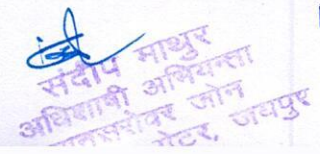 संदीप माथुर
अधिशाषी अभियन्ता
मानसरोवर जोन
ग्रेटर, जयपुर